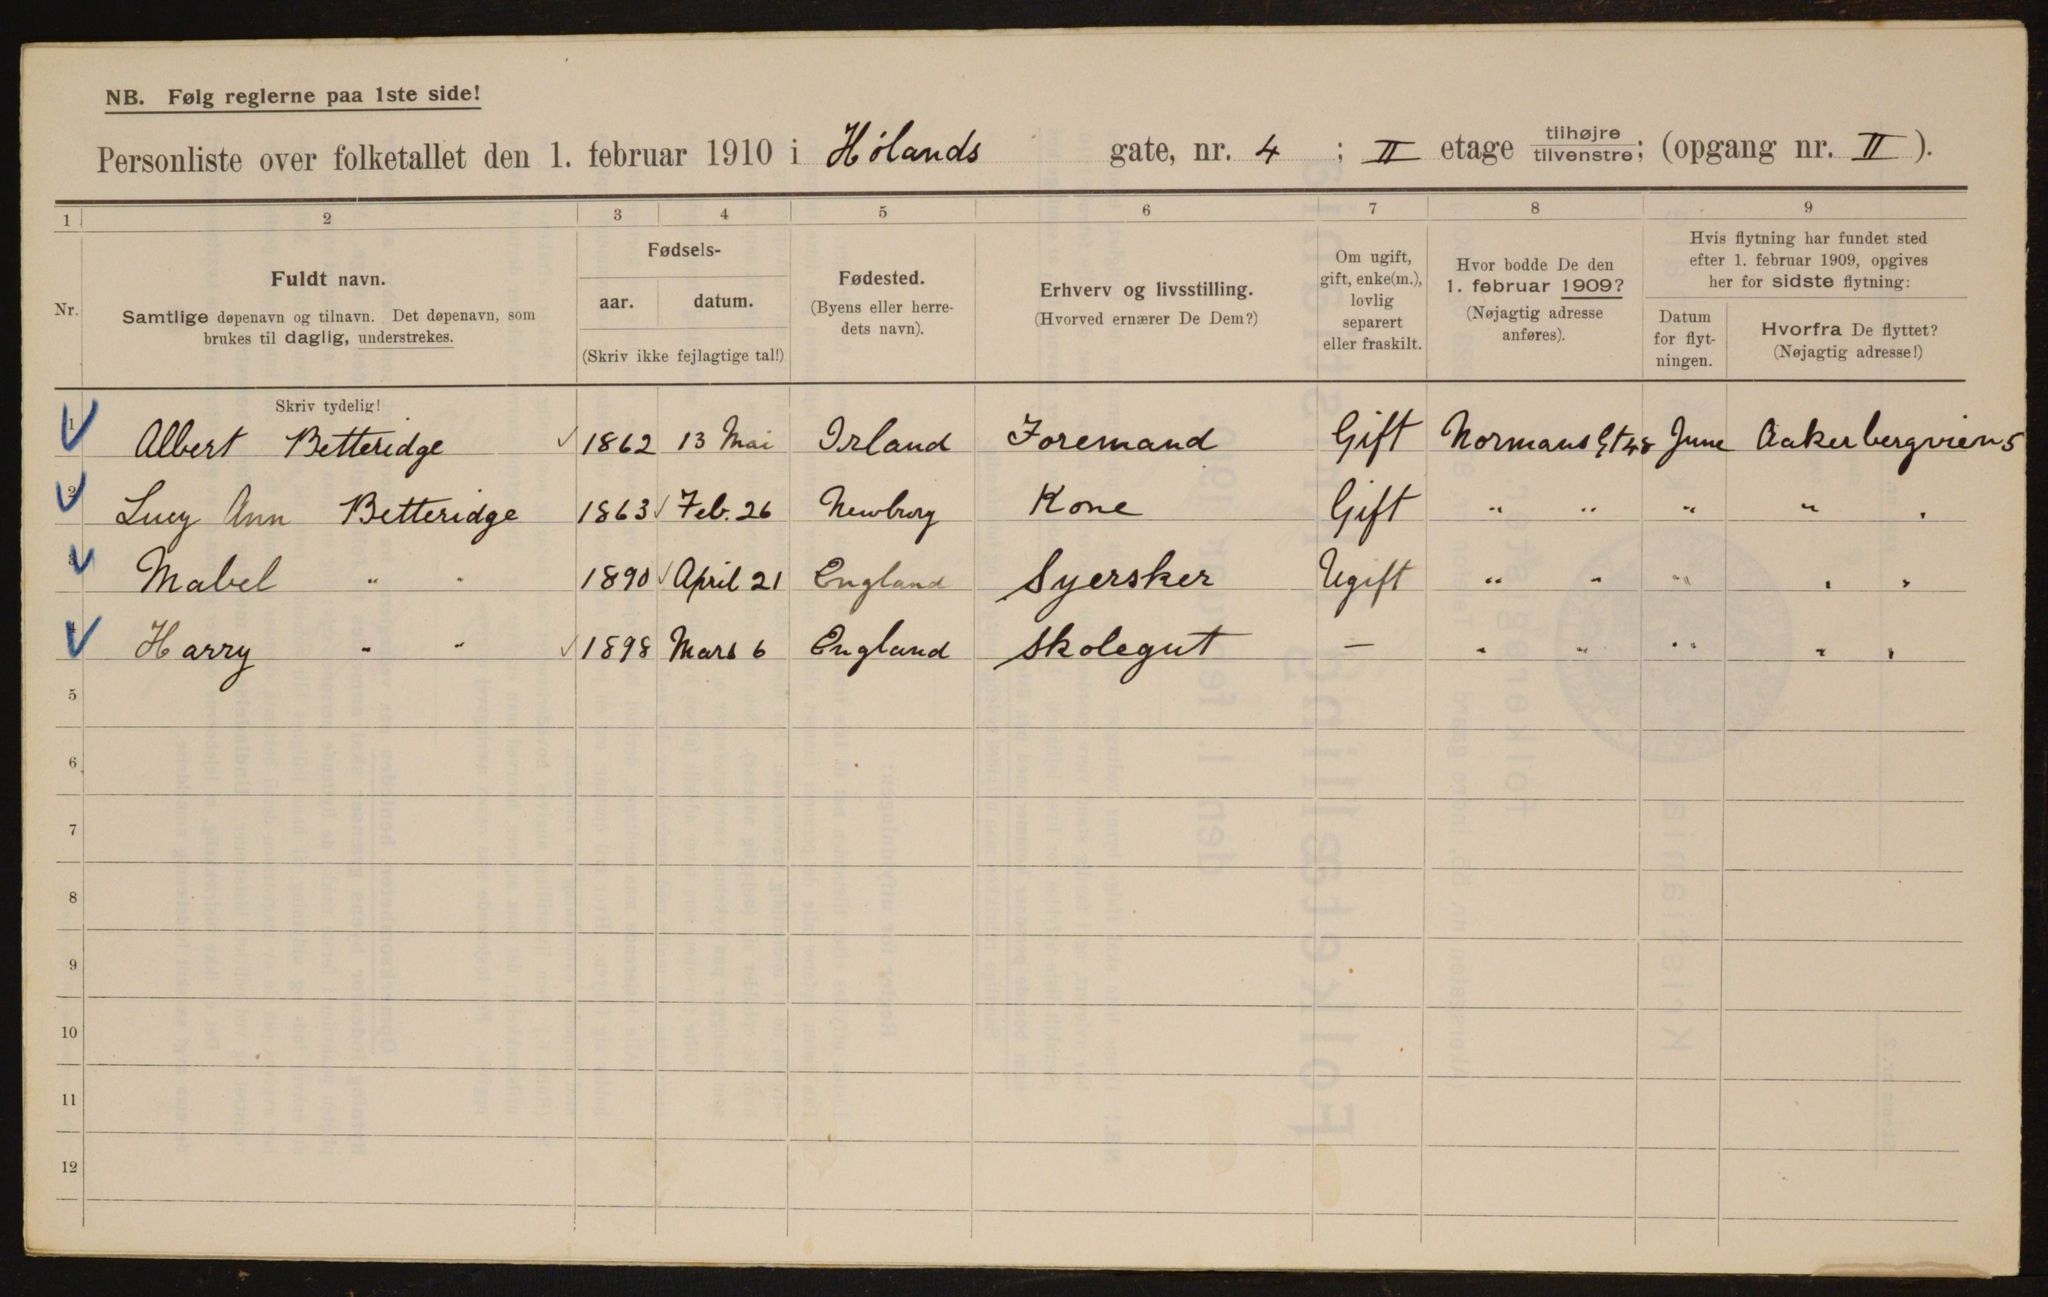 NB. Følg reglerne paa 1ste side!
Personliste over folketallet den 1. februar 1910 i Hølands gate, nr. 4 ; II etage tilhøjre tilvenstre; (opgang nr. II ).
1 2 3 4 5 6 7 8 9
Nr.
Fuldt navn.
Samtlige døpenavn og tilnavn. Det døpenavn, som
brukes til daglig, understrekes.
Fødsels-
aar. datum.
(Skriv ikke fejlagtige tal!)
Fødested.
(Byens eller herre-
dets navn).
Erhverv og livsstilling.
(Hvorved ernærer De Dem?)
Om ugift,
gift, enke(m.),
lovlig
separert
eller fraskilt.
Hvor bodde De den
1. februar 1909?
(Nøjagtig adresse
anføres).
Hvis flytning har fundet sted
efter 1. februar 1909, opgives
her for sidste flytning:
Datum
for flyt-
ningen.
Hvorfra De flyttet?
(Nøjagtig adresse!)
Skriv tydelig!
1 Albert Betteridge 1862 13 Mai Irland Foremand Gift Normans Gt 48 June Aakerbergvien 5
2 Lucy Ann Betteridge 1863 Feb. 26 Newbury Kone Gift " " " " "
3 Mabel " " 1890 April 21 England Syersker Ugift " " " " "
4 Harry " " 1898 Mars 6 England Skolegut — " " " " "
5
6
7
8
9
10
11
12